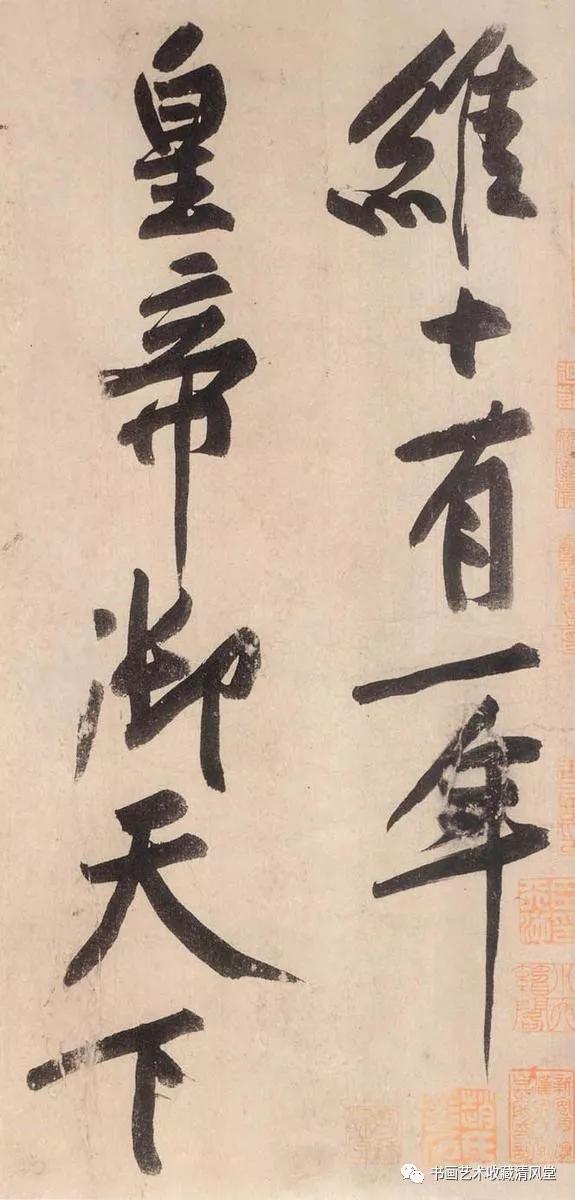 維十有一年
皇帝御天下
书画艺术收藏清风堂